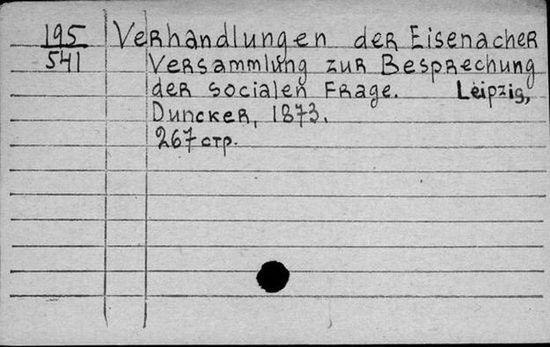 195 Verhandlungen der Eisenacher
541 Versammlung zur Besprechung
der socialen Frage. Leipzig,
Duncker, 1873.
267 стр.